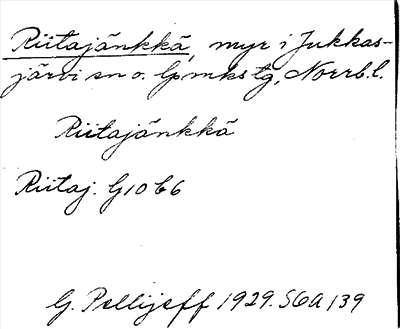 Riitajänkkä, myr i Jukkas-
järvi sn o. lpmks tg, Norrb. l.
Riitajänkkä
Riitaj. G10 b6
G. Pellijeff 1929. SGA 139